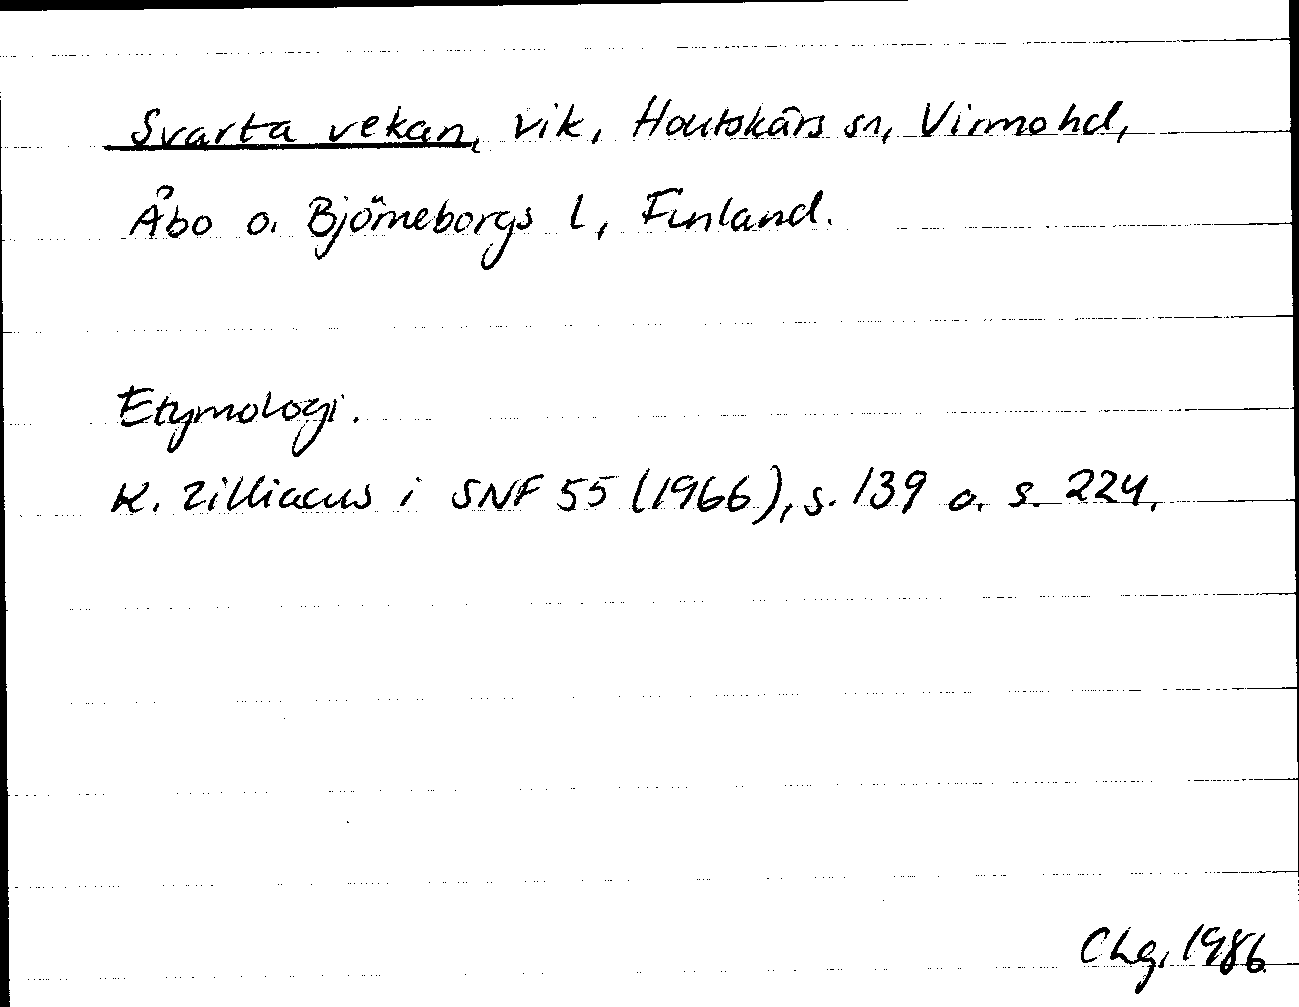 Svarta vekan, vik, Houtskärs sn, Virmo hd,
Åbo o. Björneborgs l, Finland.
Etymologi.
K. Zilliacus i SNF 55 (1966), s. 139 o. s. 224.
Chg, 1986